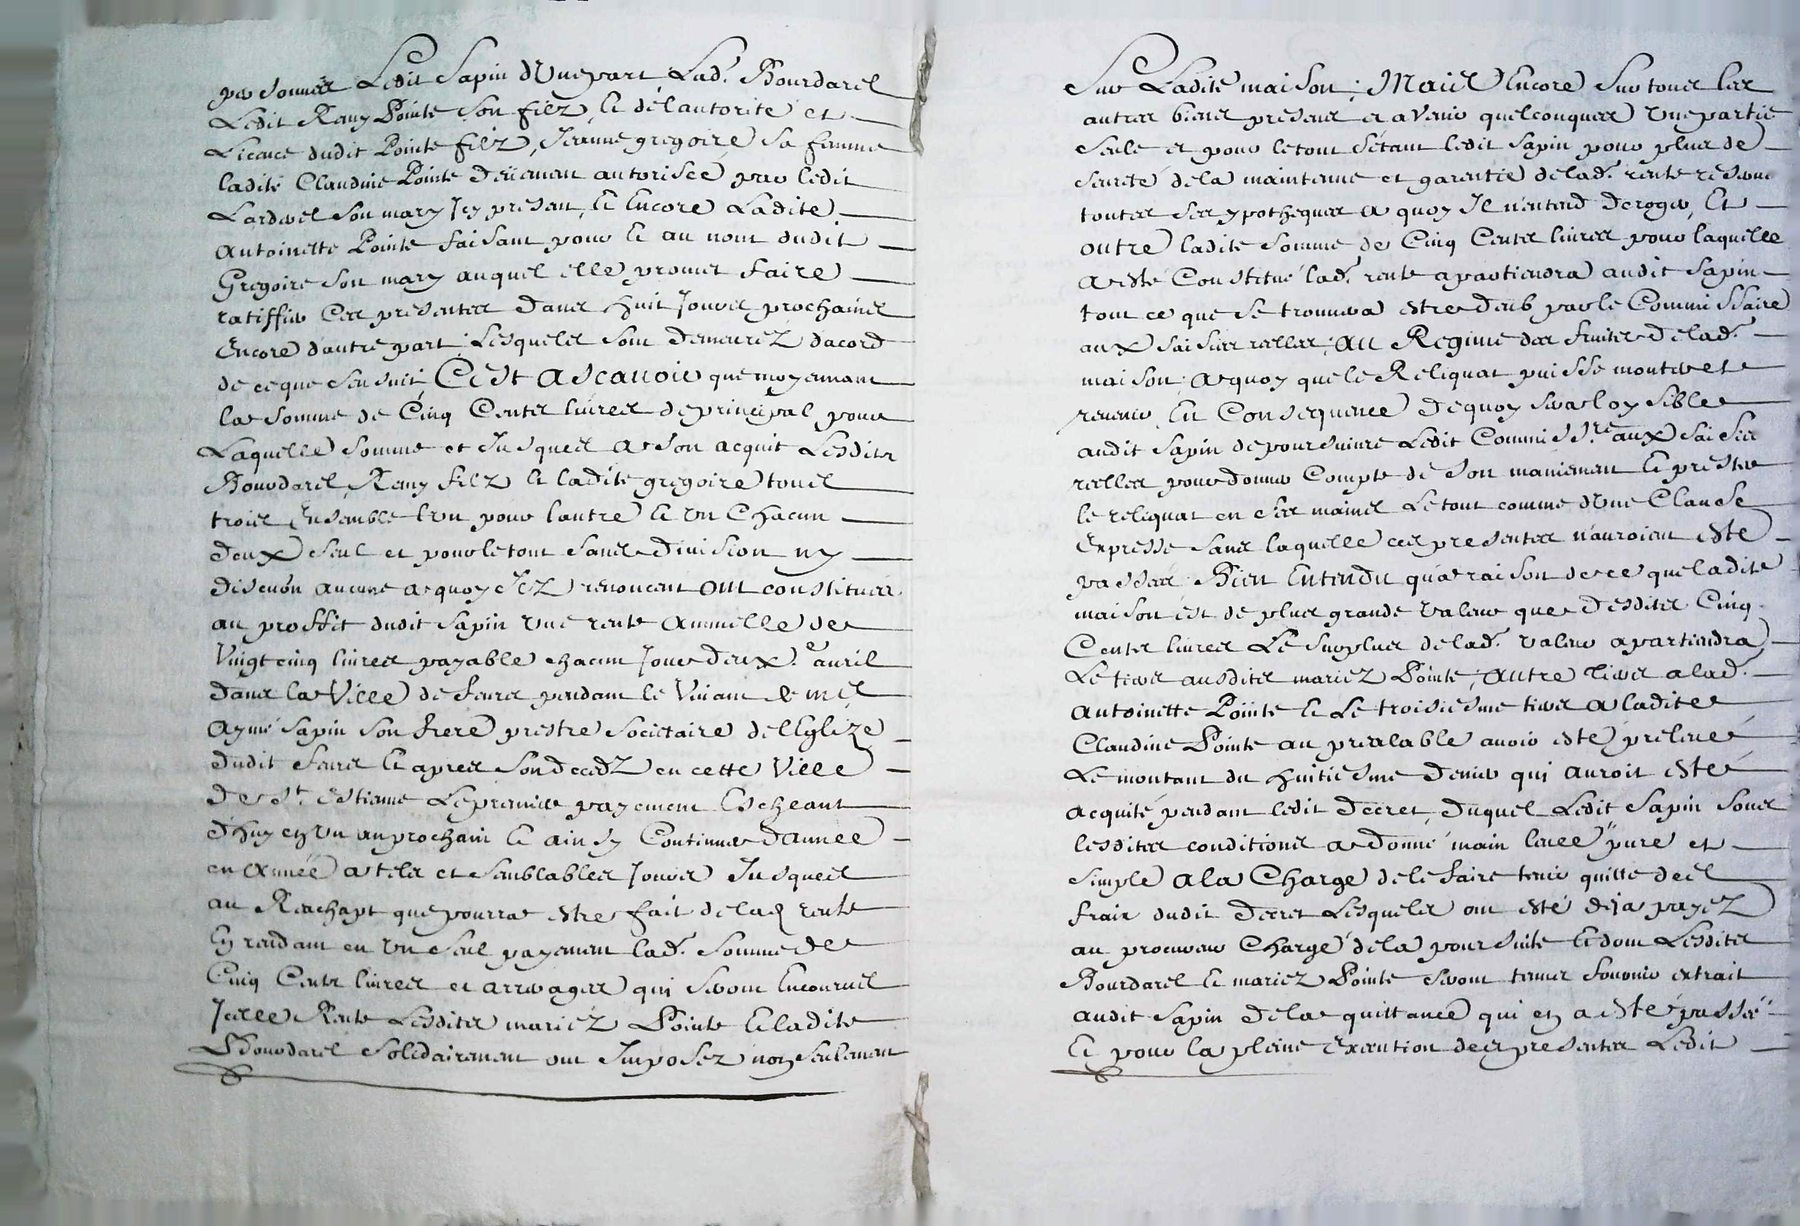 personnes Ledit Sapin d'Une part Lad.e Bourdarel
Ledit Remy Pointe son filz, et de l'autorité et
Licence dudit Pointe filz, Jeanne gregoire sa femme
ladite Claudine Pointe deüement autorisée par ledit
Lardvel son mary Icy present, et Encore Ladite
Antoinette Pointe faisant pour et au nom dudit
Gregoire son mary auquel elle promet faire
ratiffier Ces presentes dans huit Jours prochains
Encore d'autre part, Lesquels sont demeurez dacord
de ce que sensuit, C'est Ascavoir que moyennant
la somme de Cinq Cents livres de principal pour
Laquelle somme et Jusques a son acquit Lesdits
Bourdarel, Remy filz et ladite gregoire tous
trois Ensemble l'un pour l'autre et Un Chacun
deux seul et pour le tout sans division ny
discution aucune a quoy Ilz renoncent ont constitués
au proffit dudit Sapin Une rente Annuelle de
Vingt cinq livres payable chacun Jour deux.e auril
dans la Ville de feurs pendant le Viuant de m.e
Aymé Sapin son frere prestre societaire de l'Eglize
dudit feurs et apres son decedz en cette Ville
de St. Estienne Le premier payement Escheant
d'huy en Un an prochain et ainsy Continuer d'année
en Année a tels et semblables Jours Jusques
au Reachapt que pourra estre fait de lad rente
En rendant en Un seul payement lad.e somme de
Cinq Cents livres et arrerages qui seront Encourus
Icelle Rente Lesdites mariez Pointe et ladite
Bourdarel solidairement ont Imposez non seulement
Sur Ladite maison, Mais Encore Sur tous les
autres biens presens et a Venir quelconques Une partie
seule et pour le tout s'étant ledit Sapin pour plus de
seureté de la maintenue et garentie de lad.e rente reserué
toutes ses ypotheques a quoy Il n'entend deroger, Et
outre ladite somme de Cinq Cents livres pour laquelle
a esté Constitué lad.e rente apartiendra audit Sapin
tout ce que se trouuera estre deub par le Commissaire
aux saisies reelles, au Regime des fruits de lad.e
maison a quoy que le Reliquat puisse monter et
reuenir, En Consequence de quoy sera loysible
audit Sapin de poursuiure Ledit Commiss.re aux saisies
reelles pour donner Compte de son maniement et prester
le reliquat en ses mains Le tout comme d'Une Clause
Expresse sans laquelle ces presentes n'auroient esté
passées Bien Entendu qu'a raison de ce que ladite
maison est de plus grande Valeur que desdites Cinq
Cents livres Le surplus de lad.e Valeur apartiendra
Le tiers ausdits mariez Pointe, autre tiers a lad.e
Antoinette Pointe et Le troisiesme tiers a ladite
Claudine Pointe au prealable auoir esté preleué
Le montant du huitiesme denier qui auroit esté
acquité pendant ledit decret, duquel Ledit Sapin sous
lesdites conditions a donné main leuée pure et
simple a la Charge de le faire tenir quitte des
frais dudit decret Lesquels ont esté deja payez
au procureur Chargé de la poursuite et dont Lesdites
Bourdarel et mariez Pointe seront tenus fournir extrait
audit Sapin de la quittance qui en a esté passée
Et pour la pleine Execution des presentes Ledit